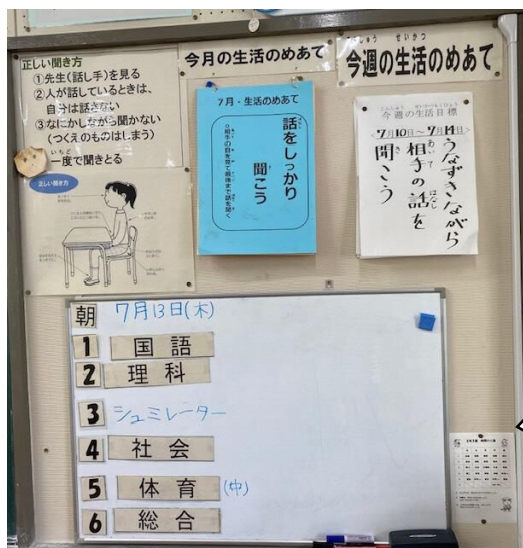 正しい聞き方
①先生(話し手)を見る
②人が話しているときは、
自分は話さない
③なにかしながら聞かない
(つくえのものはしまう)
一度で聞きとる
正しい聞き方
今月の生活のめあて
7月・生活のめあて
話をしっかり
聞こう
今週の生活のめあて
今週の生活目標
<7月10日~7月14日>
うなずきながら
相手の話を
聞こう
朝 7月13日(木)
1 国語
2 理科
3 シュミレーター
4 社会
5 体育 (中)
6 総合